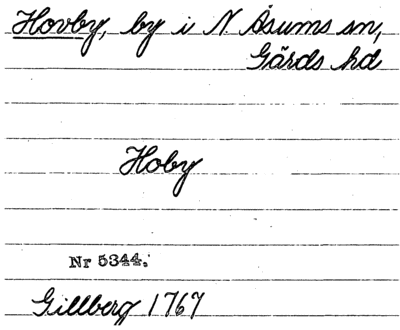 Hovby, by i N. Åsums sn,
Gärds hd
Hoby
Nr 5344.
Gillberg 1767